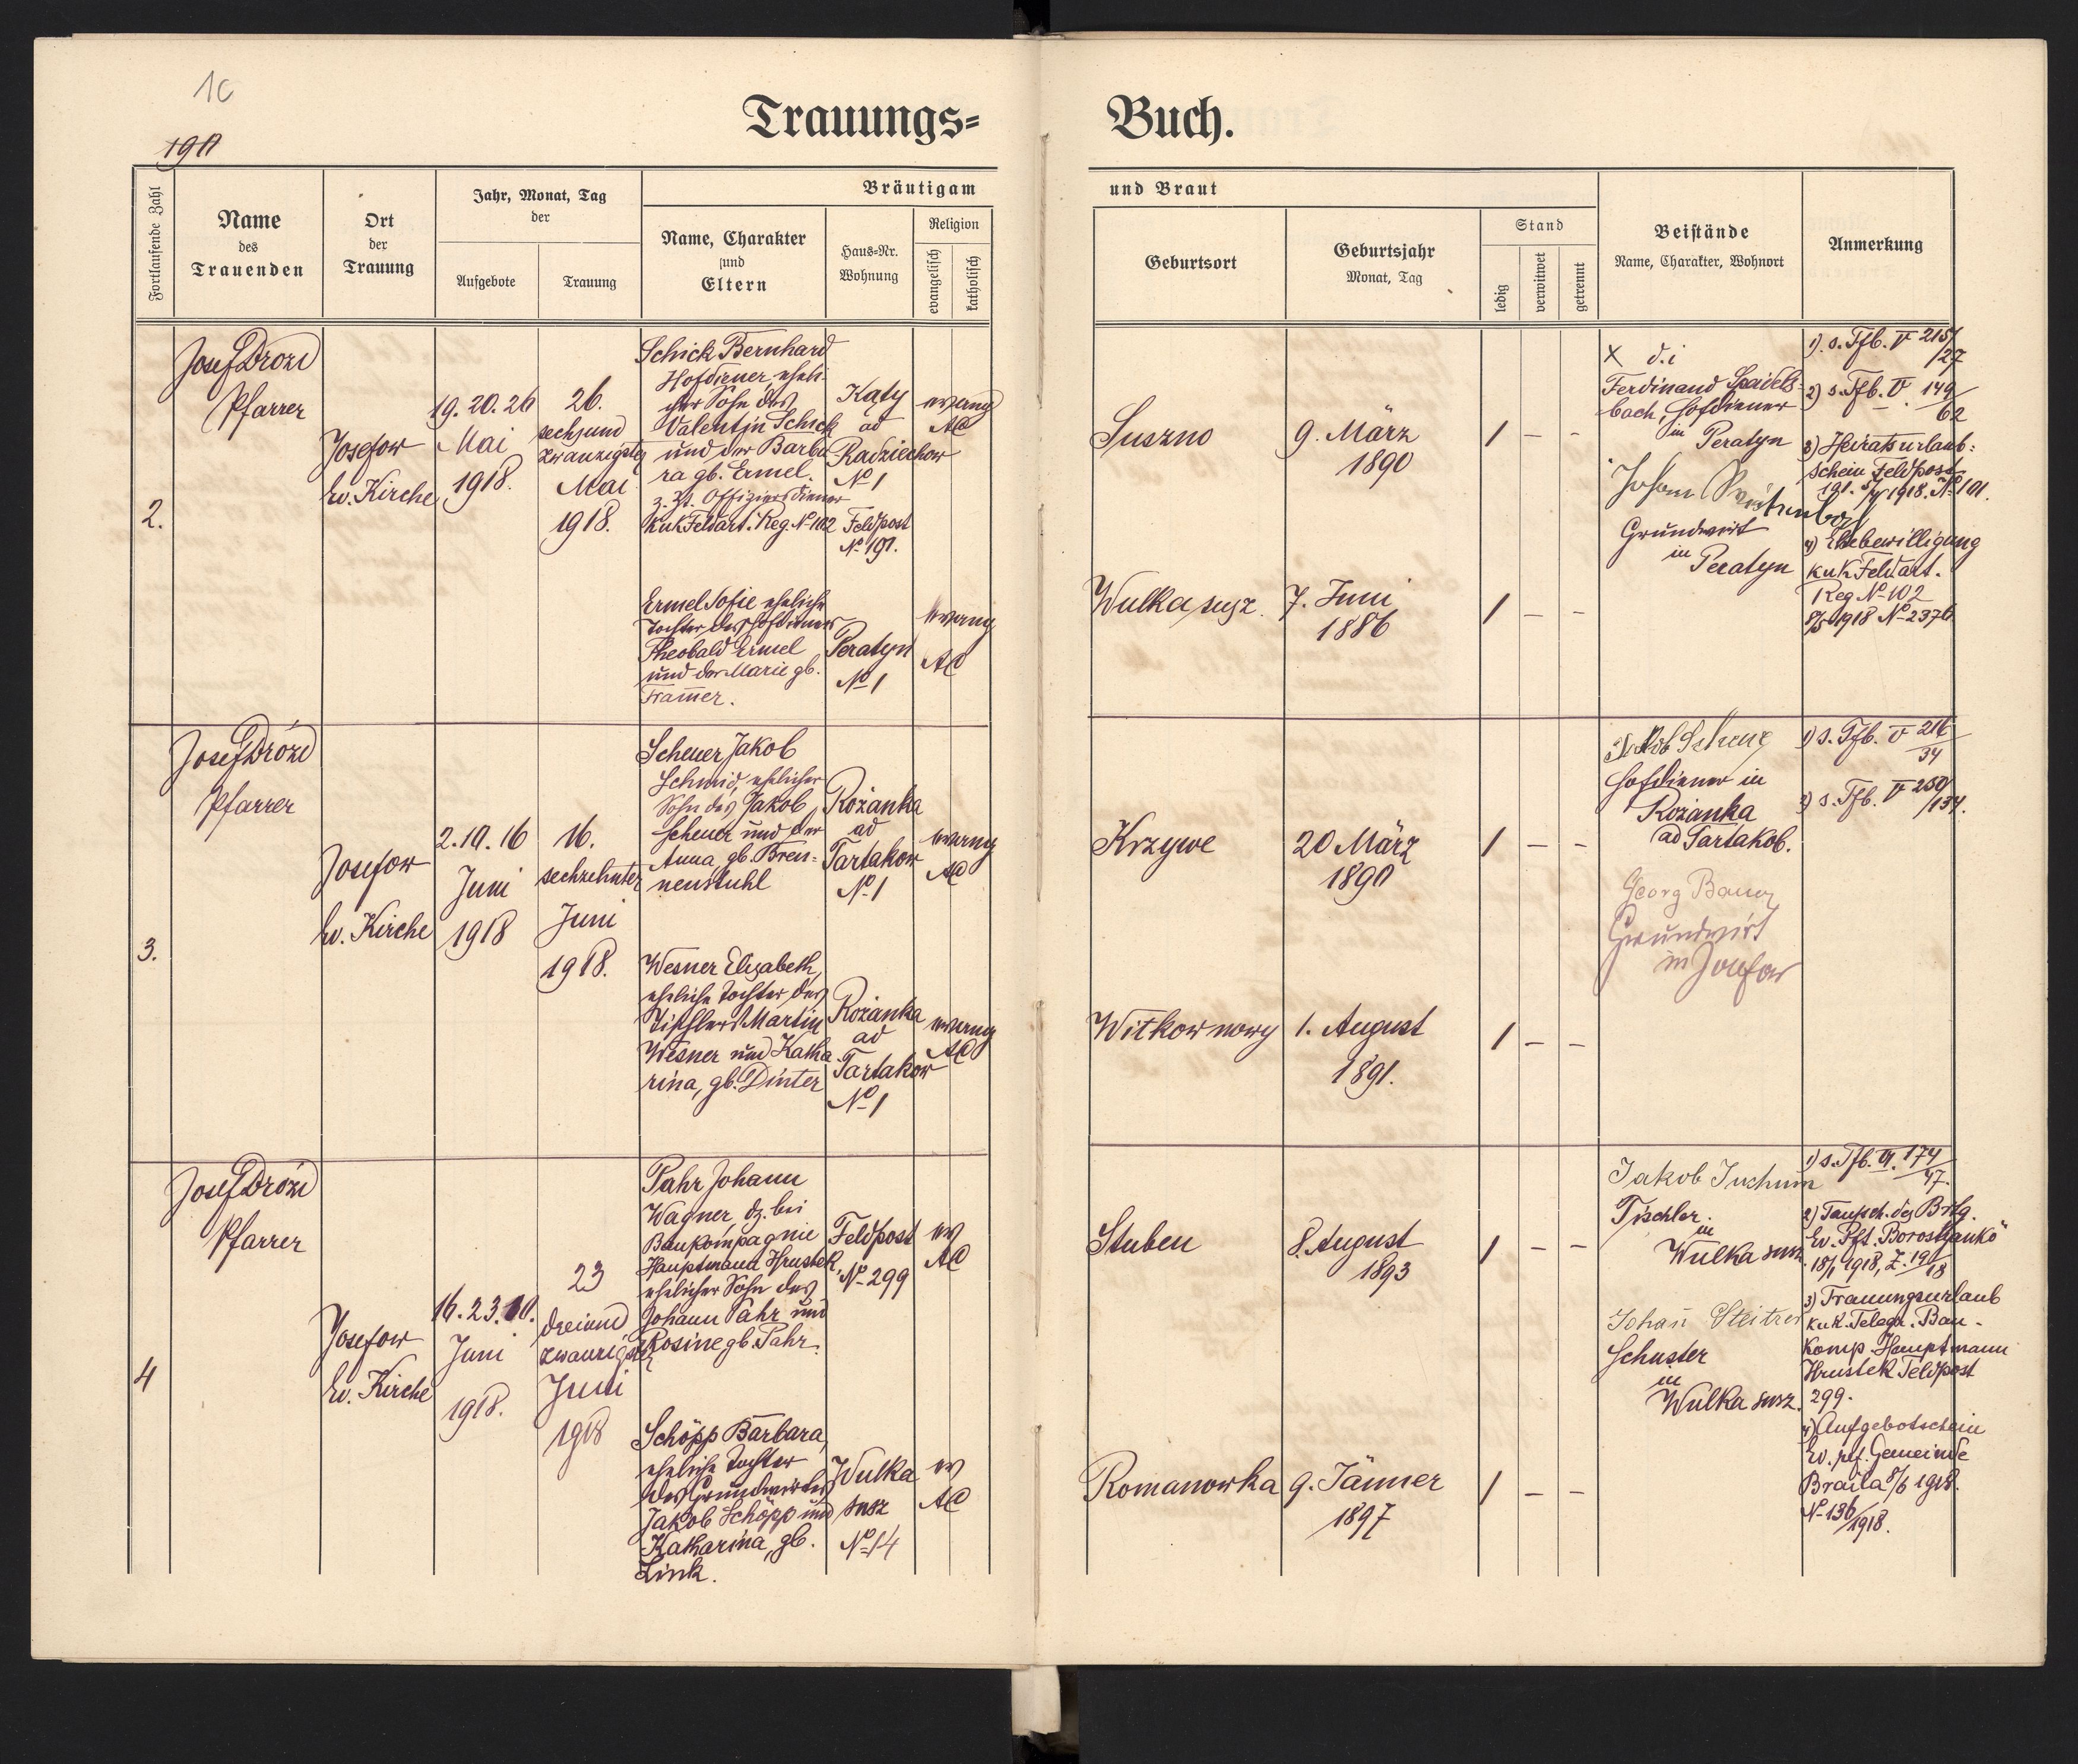 10
1911
Trauungs=
Buch.
Fortlaufende Zahl
Name
des
Trauenden
Ort
der
Trauung
Jahr, Monat, Tag
der
Aufgebote
Trauung
Bräutigam
Name, Charakter
und
Eltern
Haus=Nr.
Wohnung
Religion
evangelisch
katholisch
und Braut
Geburtsort
Geburtsjahr
Monat, Tag
Stand
ledig
verwitwet
getrennt
Beistände
Name, Charakter, Wohnort
Anmerkung
2.
Josef Drozd
Pfarrer
Josefow
Ev. Kirche
19. 20. 26
Mai
1918.
26.
sechsund
zwanzigster
Mai
1918.
Schick Bernhard
Hofdiener, eheli-
cher Sohn des
Valentin Schick
und der Barba
ra gb. Ermel.
z. Zt. Offiziersdiener
kuk Feldart. Reg. No 102
Katy
ad
Radziechow
No 1
Feldpost
No 191.
evang
AC
Ermel Sofie eheliche
Tochter des Hofdieners
Theobald Ermel
und der Marie gb.
Tram̄er.
Peratyn
No 1
evang
AC
Suszno
9. März
1890
1 – –
Wulka susz.
7. Juni
1886
1 – –
X d. i
Ferdinand Spaidels-
bach, Hofdiener
in Peratyn
Johann
Grundwirt
in Peratyn
1). s. Tfb. V 215/
/27
2) s. Tfb. V. 149/
62
3) Heiratsurlaub=
schein Feldpost
191. 5/4 1918. No 101.
4) Ehebewilligung
kuk Feldart.
Reg No 102
8/5 1918 No 2376
3.
Josef Drózd
Pfarrer
Josefow
Ev. Kirche
2. 10. 16
Juni
1918
16.
sechzehnter
Juni
1918.
Scheuer Jakob
Schmid, ehelicher
Sohn des Jakob
Scheuer und der
Anna gb. Bren=
nenstuhl
Rożanka
ad
Tartakow
No 1
evang
AC
Wesner Elisabeth,
eheliche Tochter des
Tischlers Martin
Wesner und Katha
rina, gb. Dinter
Rożanka
ad
Tartakow
No 1
evang
AC
Krzywe
20 März
1890
1 – –
Witkow nowy
1. August
1891.
1 – –
Jakob Scheuer
Hofdiener in
Rożanka
ad Tartakob.
Georg Bauer
Grundwirt
in Josefow
1) s. Tfb. V 216
34
2) s. Tfb. V 250/
/134.
4
Josef Drózd
Pfarrer
Josefow
Ev. Kirche
16. 23. 30.
Juni
1918.
23
dreiund
zwanzigster
Juni
1918
Pahr Johann
Wagner, dz. bei
Baukompagnie
Hauptmann Hrustek,
ehelicher Sohn des
Johann Pahr und
Rosine gb. Pahr.
Feldpost
No 299
ev
AC
Schöpp Barbara,
eheliche Tochter
des Grundwirtes
Jakob Schöpp und
Katharina, gb.
Link.
Wulka
susz
No 14
ev
AC
Stuben
8. August
1893
1 – –
Romanowka
9. Jänner
1897
1 – –
Jakob Juchum
Tischler
in
Wulka susz.
Johan̄ Steitzer
Schuster
in
Wulka susz.
1) s. Tfb. VI. 174/
47.
2) Taufsch. des Brtg.
Ev. Pft. Borostyankö
18/1 1918, Z. 191/
18
3) Trauungsurlaub
kuk. Telegr. Bau-
Komp. Hauptmann
Hrustek Feldpost
299.
4) Aufgebotschein
Ev. ref. Gemeinde
Braila 8/6 1918.
No 136/
1918.